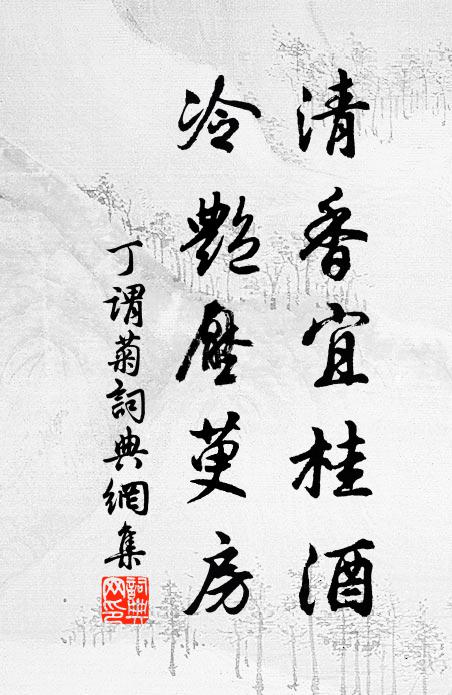 清香宜桂酒
冷艷壓萸房
丁謂菊詞典網集
詞典
网印